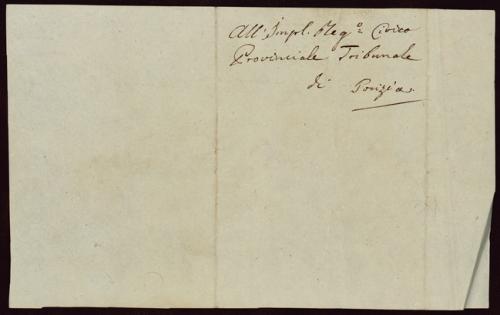 All' Impl. Reg.o Civico
Provinciale Tribunale
di